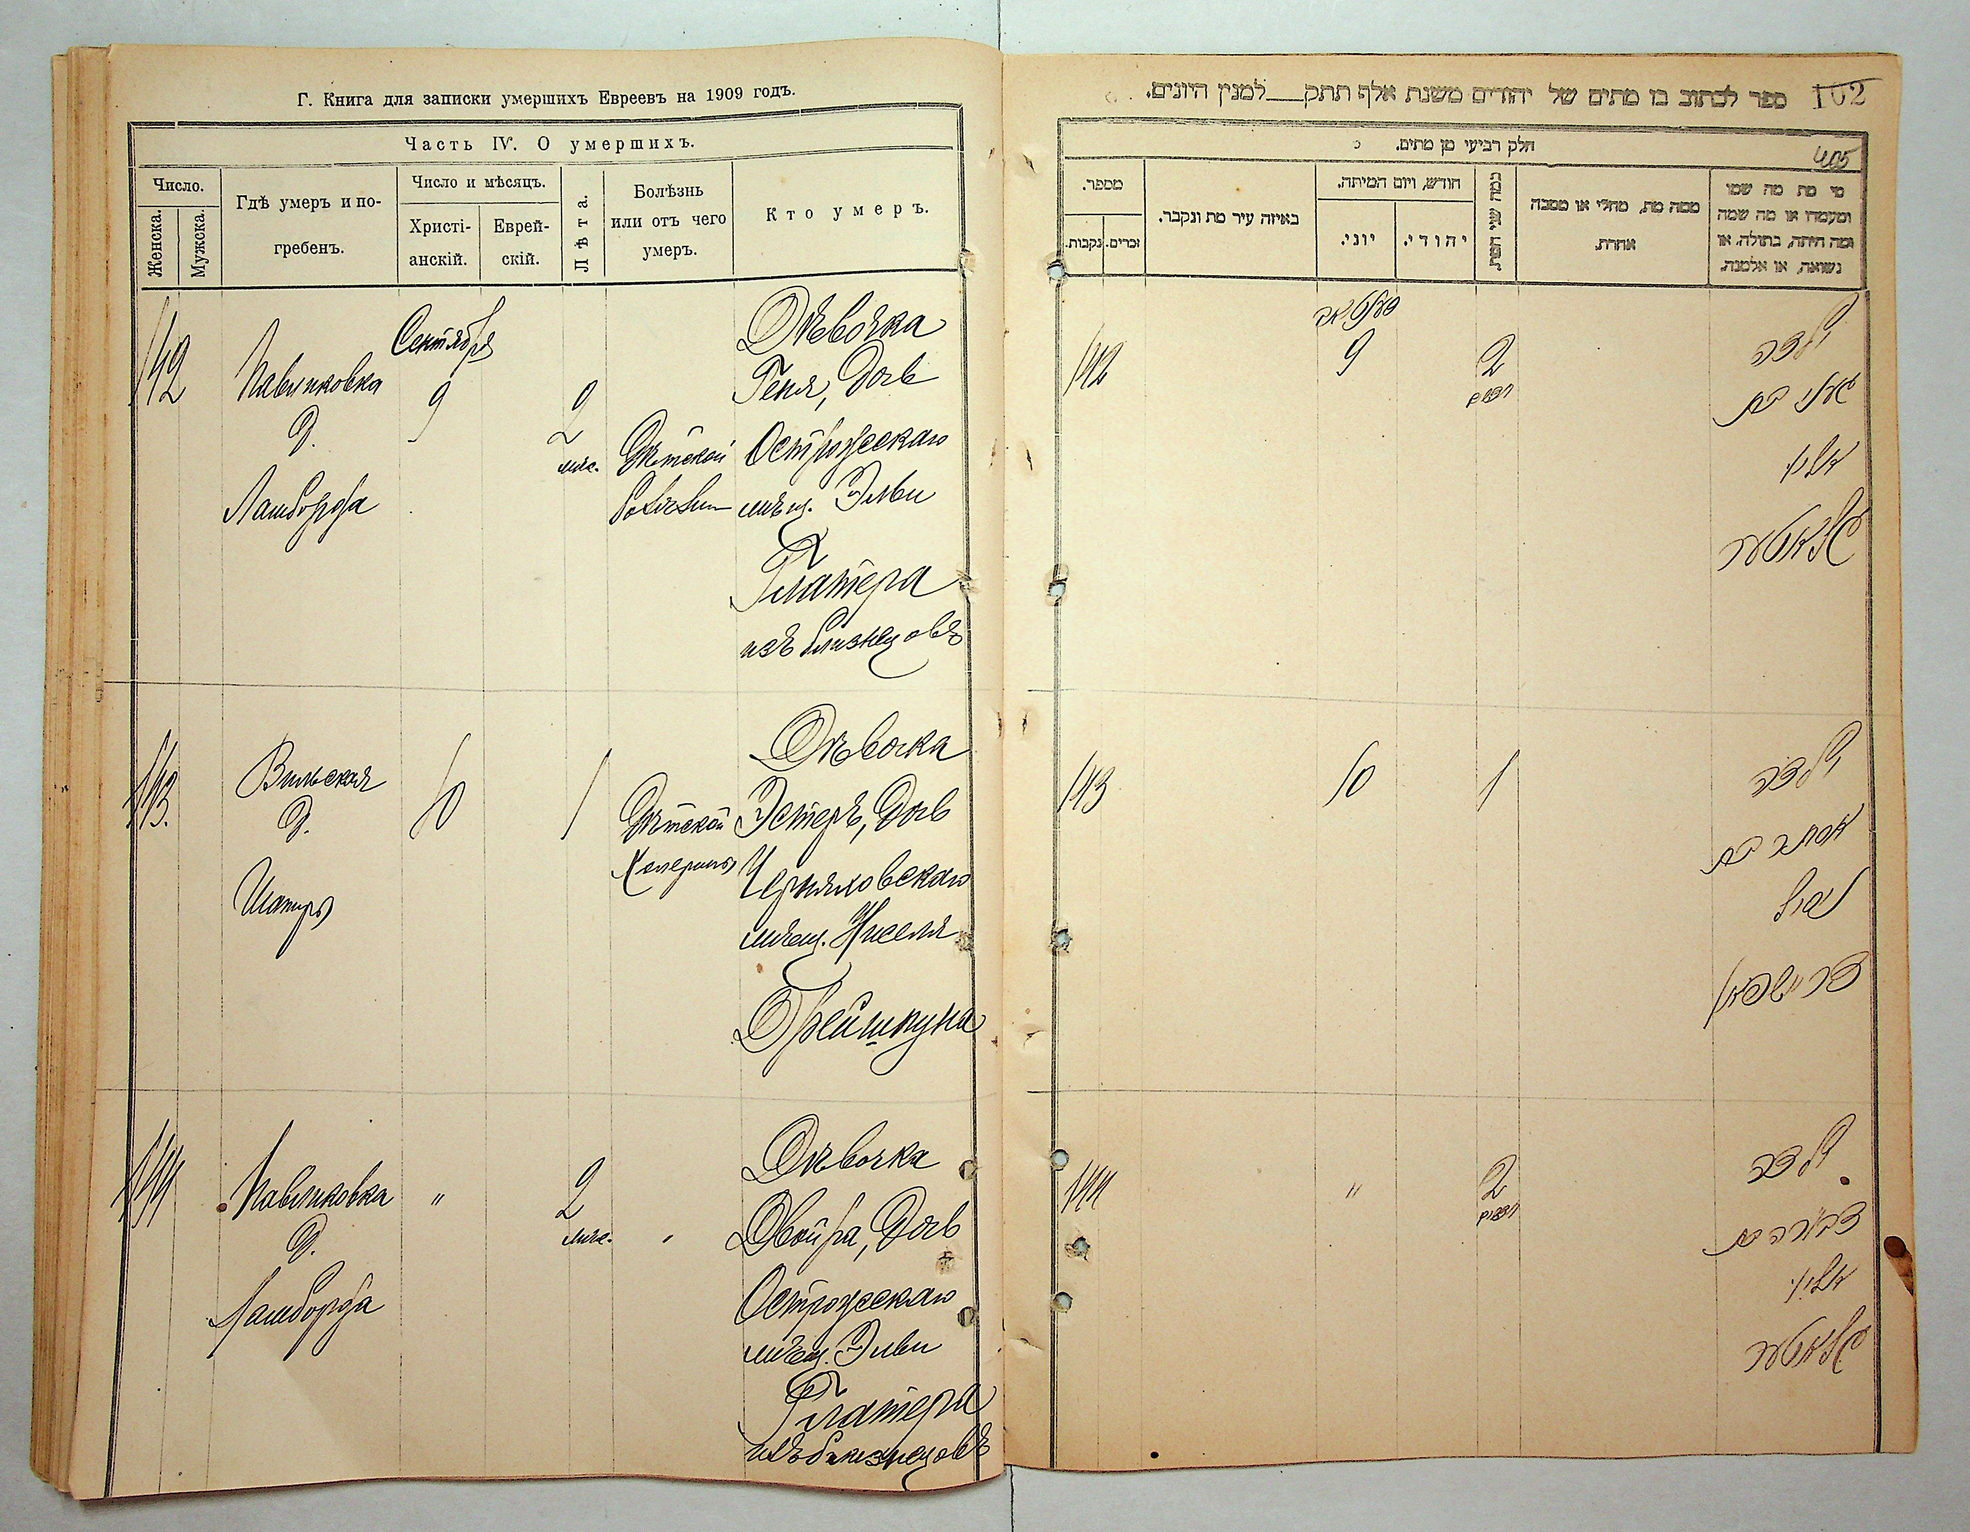 Г. Книга для записки умершихъ Евреевъ на 1909 годъ.
Часть IV. О умершихъ.
Число.
Женска.
Мужска.
Гдѣ умеръ и по-
гребенъ.
Число и мѣсяцъ.
Христі-
анскій.
Еврей-
скій.
Лѣта.
Болѣзнь
или отъ чего
умеръ.
Кто умеръ.
142
Павликовка
Д.
Ламборда
Сентября
9
2
мѣс.
Дѣтской
болѣзни
Дѣвочка
Геня, дочь
Острожскаго
мѣщ. Эльи
Глатера
изъ близнецовъ
143.
Вильская
Д.
Шапиры
10
1
Дѣтской
холерины
Дѣвочка
Эстеръ, дочь
Черняховскаго
мѣщ. Ниселя
Дрейшпуна
144
Павликовка
Д.
Ламборда
"
2
мѣс.
"
Дѣвочка
Двойра, дочь
Острожскаго
мѣщ. Эльи
Глатера
изъ близнецовъ
ספר לכתוב בו מתים של יהודים משנת אלף תתק למנין היונים.
102
405
חלק רביעי מן מתים.
מספר.
נקבות.
זכרים.
באיזה עיר מת ונקבר.
חודש, ויום המיתה.
יוני.
יהודי.
כמה שני המת.
ממה מת, מחלי או ממכה
אחרת.
מי מת מה שמו
ומעמדו או מה שמה
ומה היתה, בתולה, או
נשואה, או אלמנה.
142
9
2
חדשים
ילדה
געני בת
אלי׳
גלאטער
143
10
1
ילדה
אסתר בת
ניסל
144
"
2
חדשים
ילדה
דבורה בת
אלי׳
גלאטער